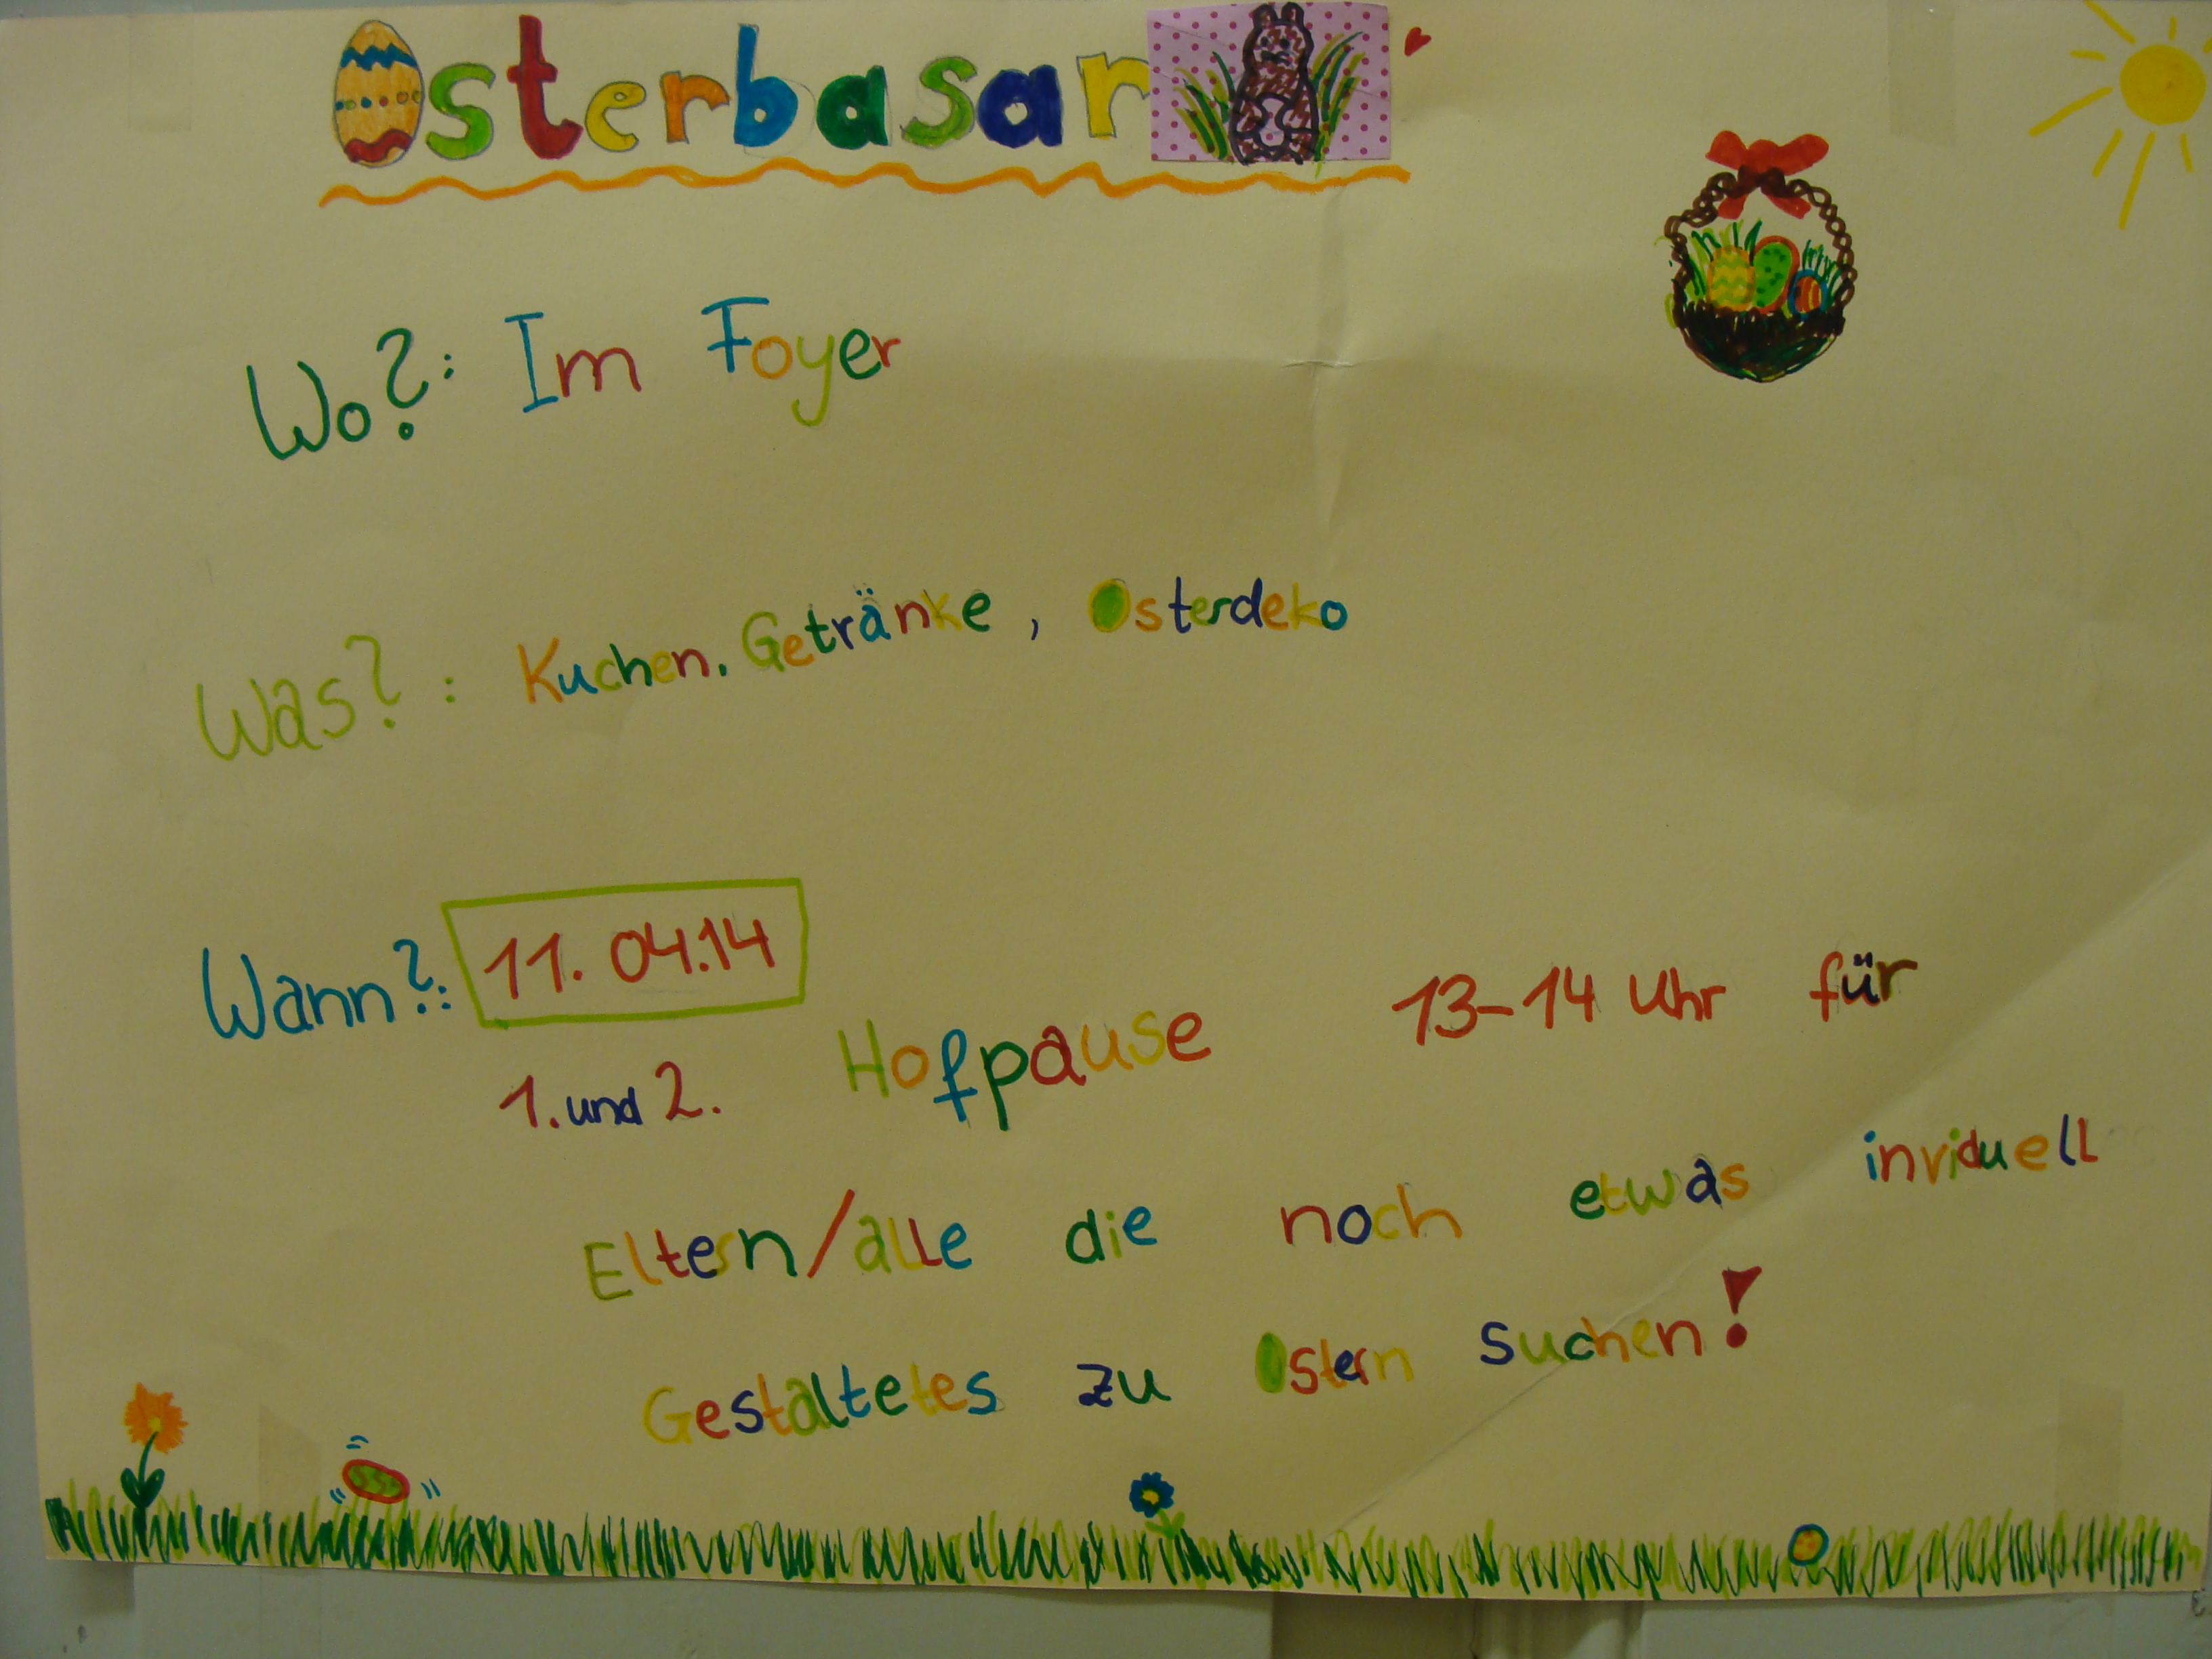 Osterbasar
Wo?: Im Foyer
Was?: Kuchen. Getränke, Osterdeko
Wann?: 11.04.14
1. und 2. Hofpause 13-14 Uhr für
Eltern/alle die noch etwas inviduell
Gestaltetes zu Ostern suchen!